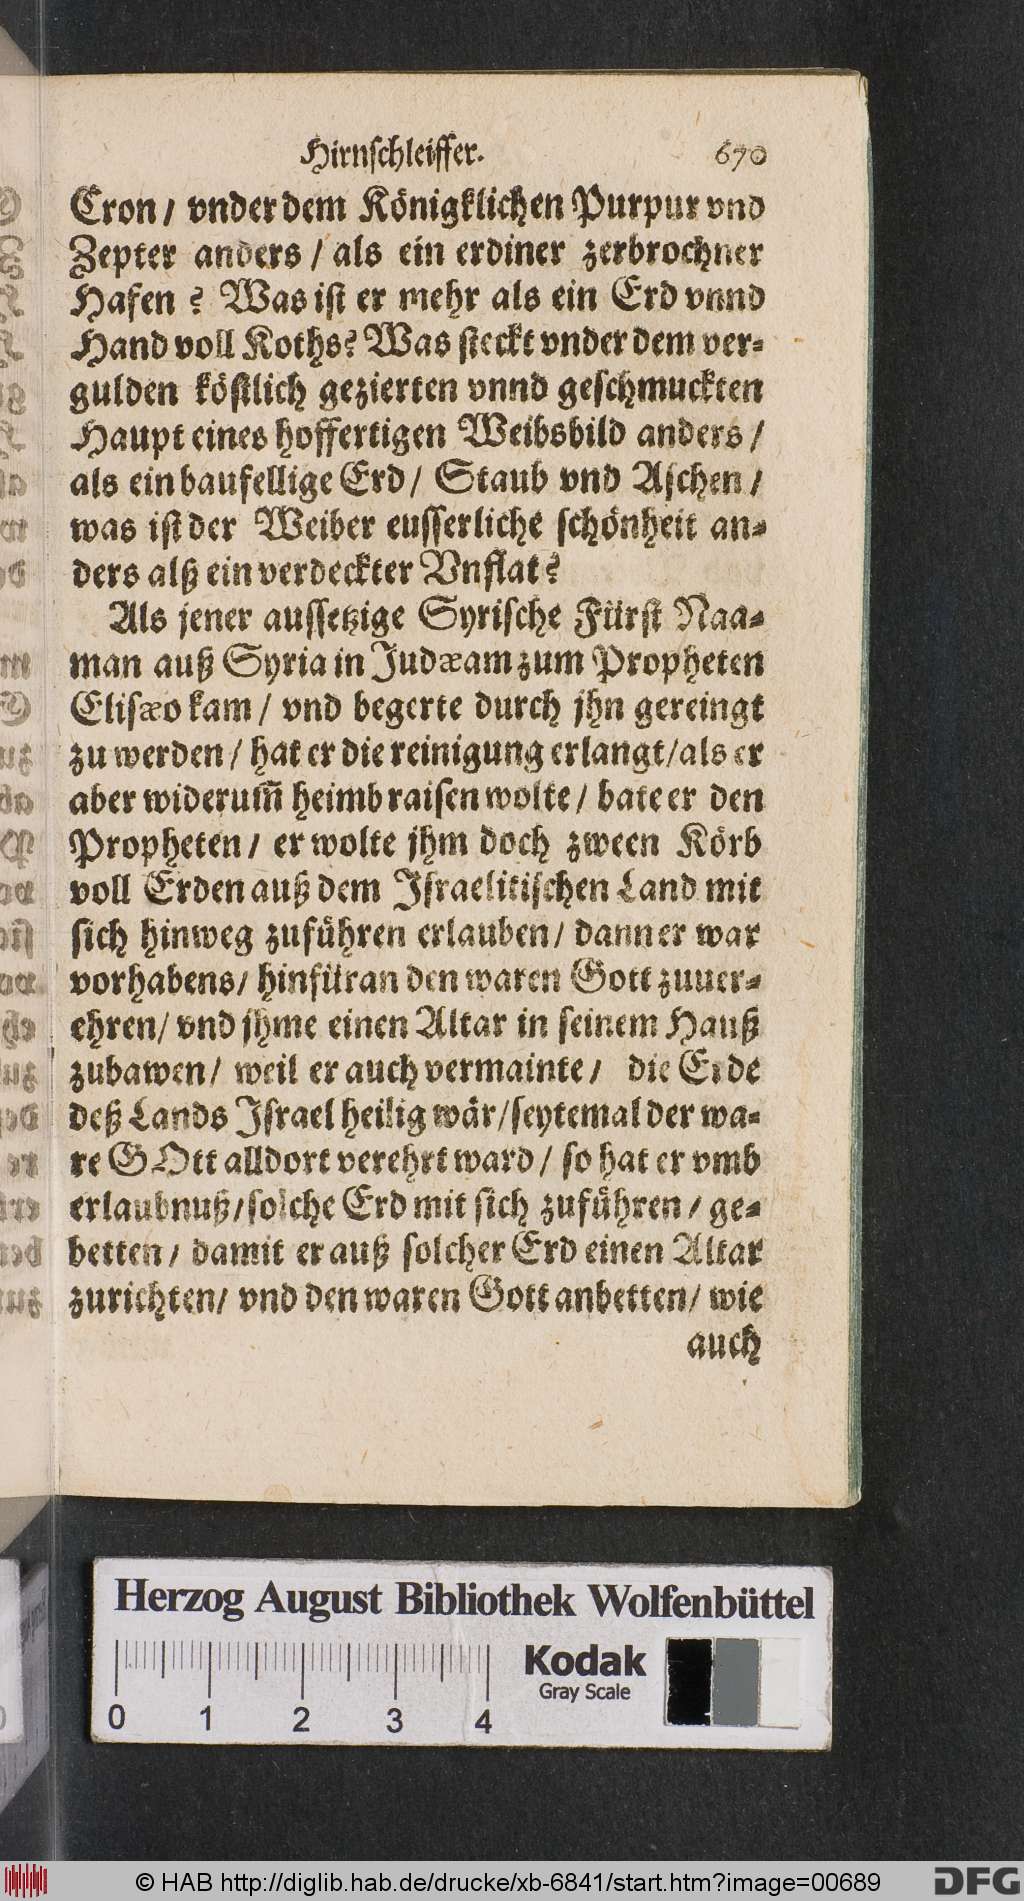 Hirnschleiffer. 670
Cron / vnder dem Königklichen Purpur vnd
Zepter anders / als ein erdiner zerbrochner
Hafen ? Was ist er mehr als ein Erd vnnd
Hand voll Koths? Was steckt vnder dem ver-
gulden köstlich gezierten vnnd geschmuckten
Haupt eines hoffertigen Weibsbild anders /
als ein baufellige Erd / Staub vnd Aschen /
was ist der Weiber eusserliche schönheit an-
ders alß ein verdeckter Vnflat?
Als jener aussetzige Syrische Fürst Naa-
man auß Syria in Judæam zum Propheten
Elisæo kam / vnd begerte durch jhn gereingt
zu werden / hat er die reinigung erlangt / als er
aber widerum̃ heimb raisen wolte / bate er den
Propheten / er wolte jhm doch zween Körb
voll Erden auß dem Israelitischen Land mit
sich hinweg zuführen erlauben / dann er war
vorhabens / hinfüran den waren Gott zuuer-
ehren / vnd jhme einen Altar in seinem Hauß
zubawen / weil er auch vermainte / die Erde
deß Lands Israel heilig wär / seytemal der wa-
re GOtt alldort verehrt ward / so hat er vmb
erlaubnuß / solche Erd mit sich zuführen / ge-
betten / damit er auß solcher Erd einen Altar
zurichten / vnd den waren Gott anbetten / wie
auch
Herzog August Bibliothek Wolfenbüttel
Kodak
Gray Scale
0 1 2 3 4
© HAB http://diglib.hab.de/drucke/xb-6841/start.htm?image=00689
DFG